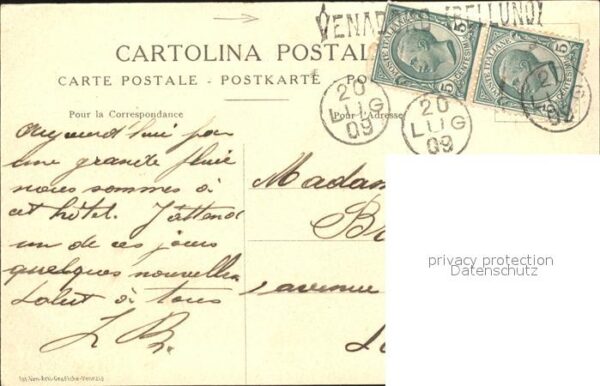 VENAS (BELLUNO)
CARTOLINA POSTAL
CARTE POSTALE - POSTKARTE PO
Pour la Correspondance
Pour l'Adresse
POSTE ITALIANE CENTESIMI 5
POSTE ITALIANE CENTESIMI 5
20 LUG 09
20 LUG 09
21
Aujourd'hui par
une grande pluie
nous sommes à
cet hôtel. J'attend
un de ces jours
quelques nouvelles
Salut à tous
Madam
B
avenue
privacy protection
Datenschutz